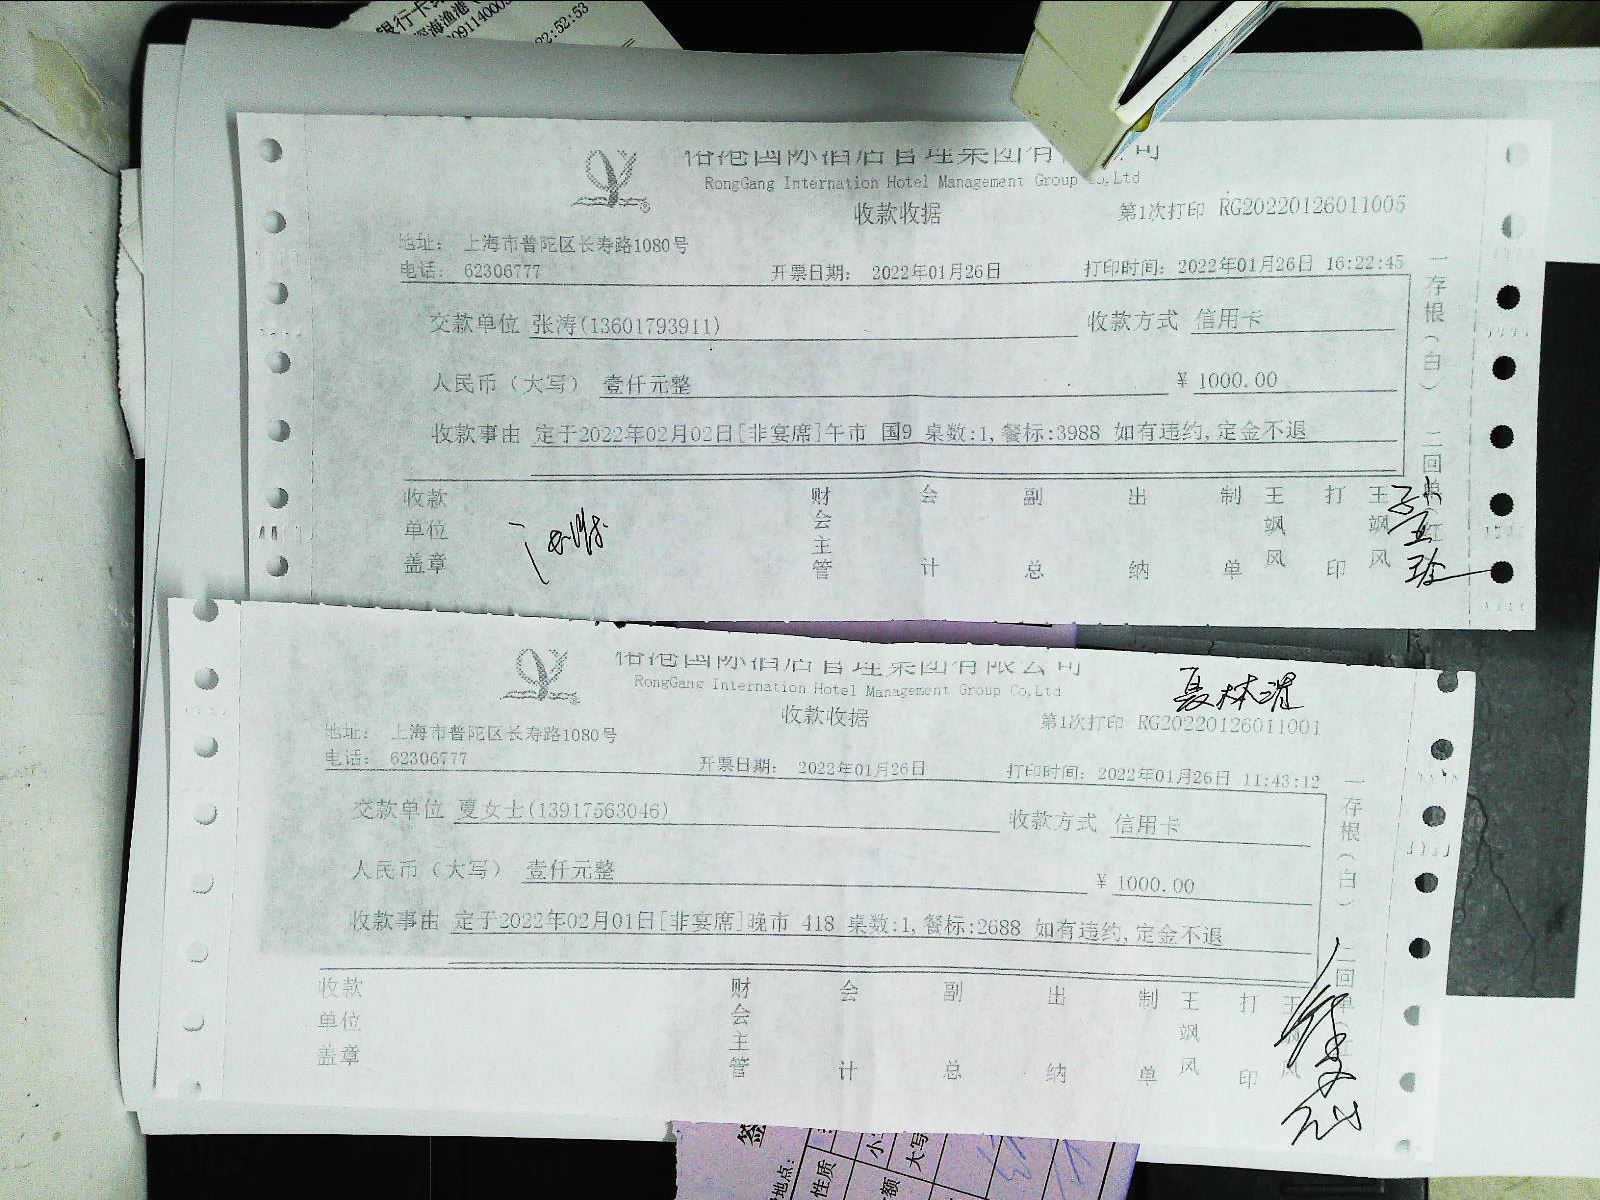 银行卡
深海渔港
09114000
22:52:53
国际酒店管理集团有 司
RongGang Internation Hotel Management Group Co,Ltd
收款收据
第1次打印 RG20220126011005
地址: 上海市普陀区长寿路1080号
电话: 62306777
开票日期: 2022年01月26日
打印时间: 2022年01月26日 16:22:45
交款单位 张涛(13601793911)
收款方式 信用卡
人民币（大写） 壹仟元整
¥ 1000.00
收款事由 定于2022年02月02日[非宴席]午市 国9 桌数:1,餐标:3988 如有违约,定金不退
一存根（白） 二回单（红）
收款单位盖章
财会主管
会计
副总
出纳
制单
王飒风
打印
王飒风
裕港国际酒店管理集团有限公司
RongGang Internation Hotel Management Group Co,Ltd
收款收据
第1次打印 RG20220126011001
地址: 上海市普陀区长寿路1080号
电话: 62306777
开票日期: 2022年01月26日
打印时间: 2022年01月26日 11:43:12
交款单位 夏女士(13917563046)
收款方式 信用卡
人民币（大写） 壹仟元整
¥ 1000.00
收款事由 定于2022年02月01日[非宴席]晚市 418 桌数:1,餐标:2688 如有违约,定金不退
一存根（白） 二回单（红）
收款单位盖章
财会主管
会计
副总
出纳
制单
王飒风
打印
王飒风
签
地点:
性质
小
大写
额